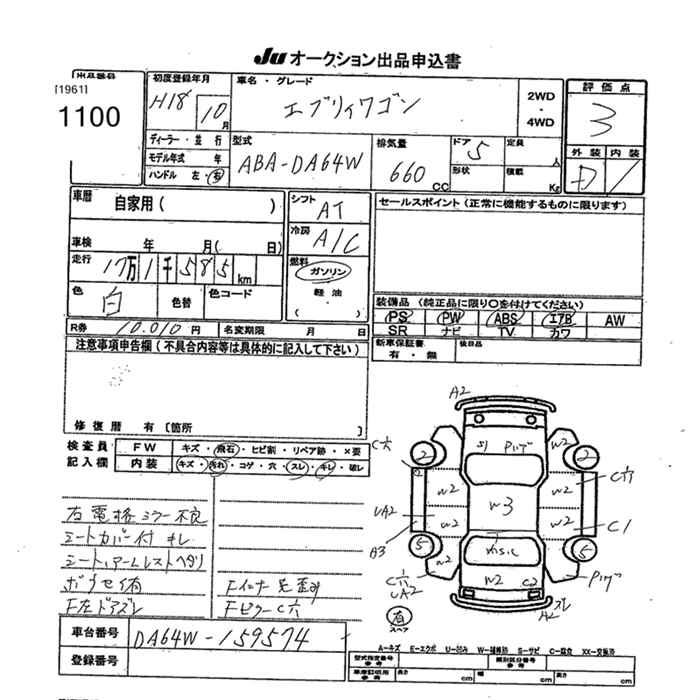 Ju オークション出品申込書
出品番号
[1961]
1100
初度登録年月
H18 10月
車名・グレード
エブリィワゴン
2WD
・
4WD
評価点
3
ディーラー・並行
モデル年式 年
ハンドル 左・右
型式
ABA-DA64W
排気量
660 CC
ドア 5
形状
定員 人
積載 Kg
外装 内装
D
車歴
自家用( )
シフト
AT
セールスポイント(正常に機能するものに限ります)
車検 年 月( 日)
冷房
A/C
走行
17万1千585km
燃料
ガソリン
軽油
( )
色
白
色替
色コード
装備品(純正品に限り○を付けてください)
PS PW ABS エアB AW
SR ナビ TV カワ
R券 10.010円 名変期限 月 日
新車保証書
有・無
後日品
注意事項申告欄(不具合内容等は具体的に記入して下さい)
修復歴 有[箇所
検査員
記入欄
FW キズ・飛石・ヒビ割・リペア跡・×要
内装 キズ・汚れ・コゲ・穴・スレ・キレ・破レ
右電格ミラー不良
シートカバー付 キレ
シート、アームレストヘタリ
F左ドアズレ
Fインナー
Fピラー C穴
車台番号 DA64W-159574
登録番号
A2
C穴
2
S1
W2
2
C穴
W2
W2
UA2
W2
W3
W2
C1
A3
5
5
W2
W2
C2
UA2
A2
有
スペア
A-キズ E-エクボ U-凹み W-補修跡 S-サビ C-腐食 XX-交換済
型式指定番号
参考
類別区分番号
参考
車庫証明用
参考
長さ cm
幅 cm
高さ cm